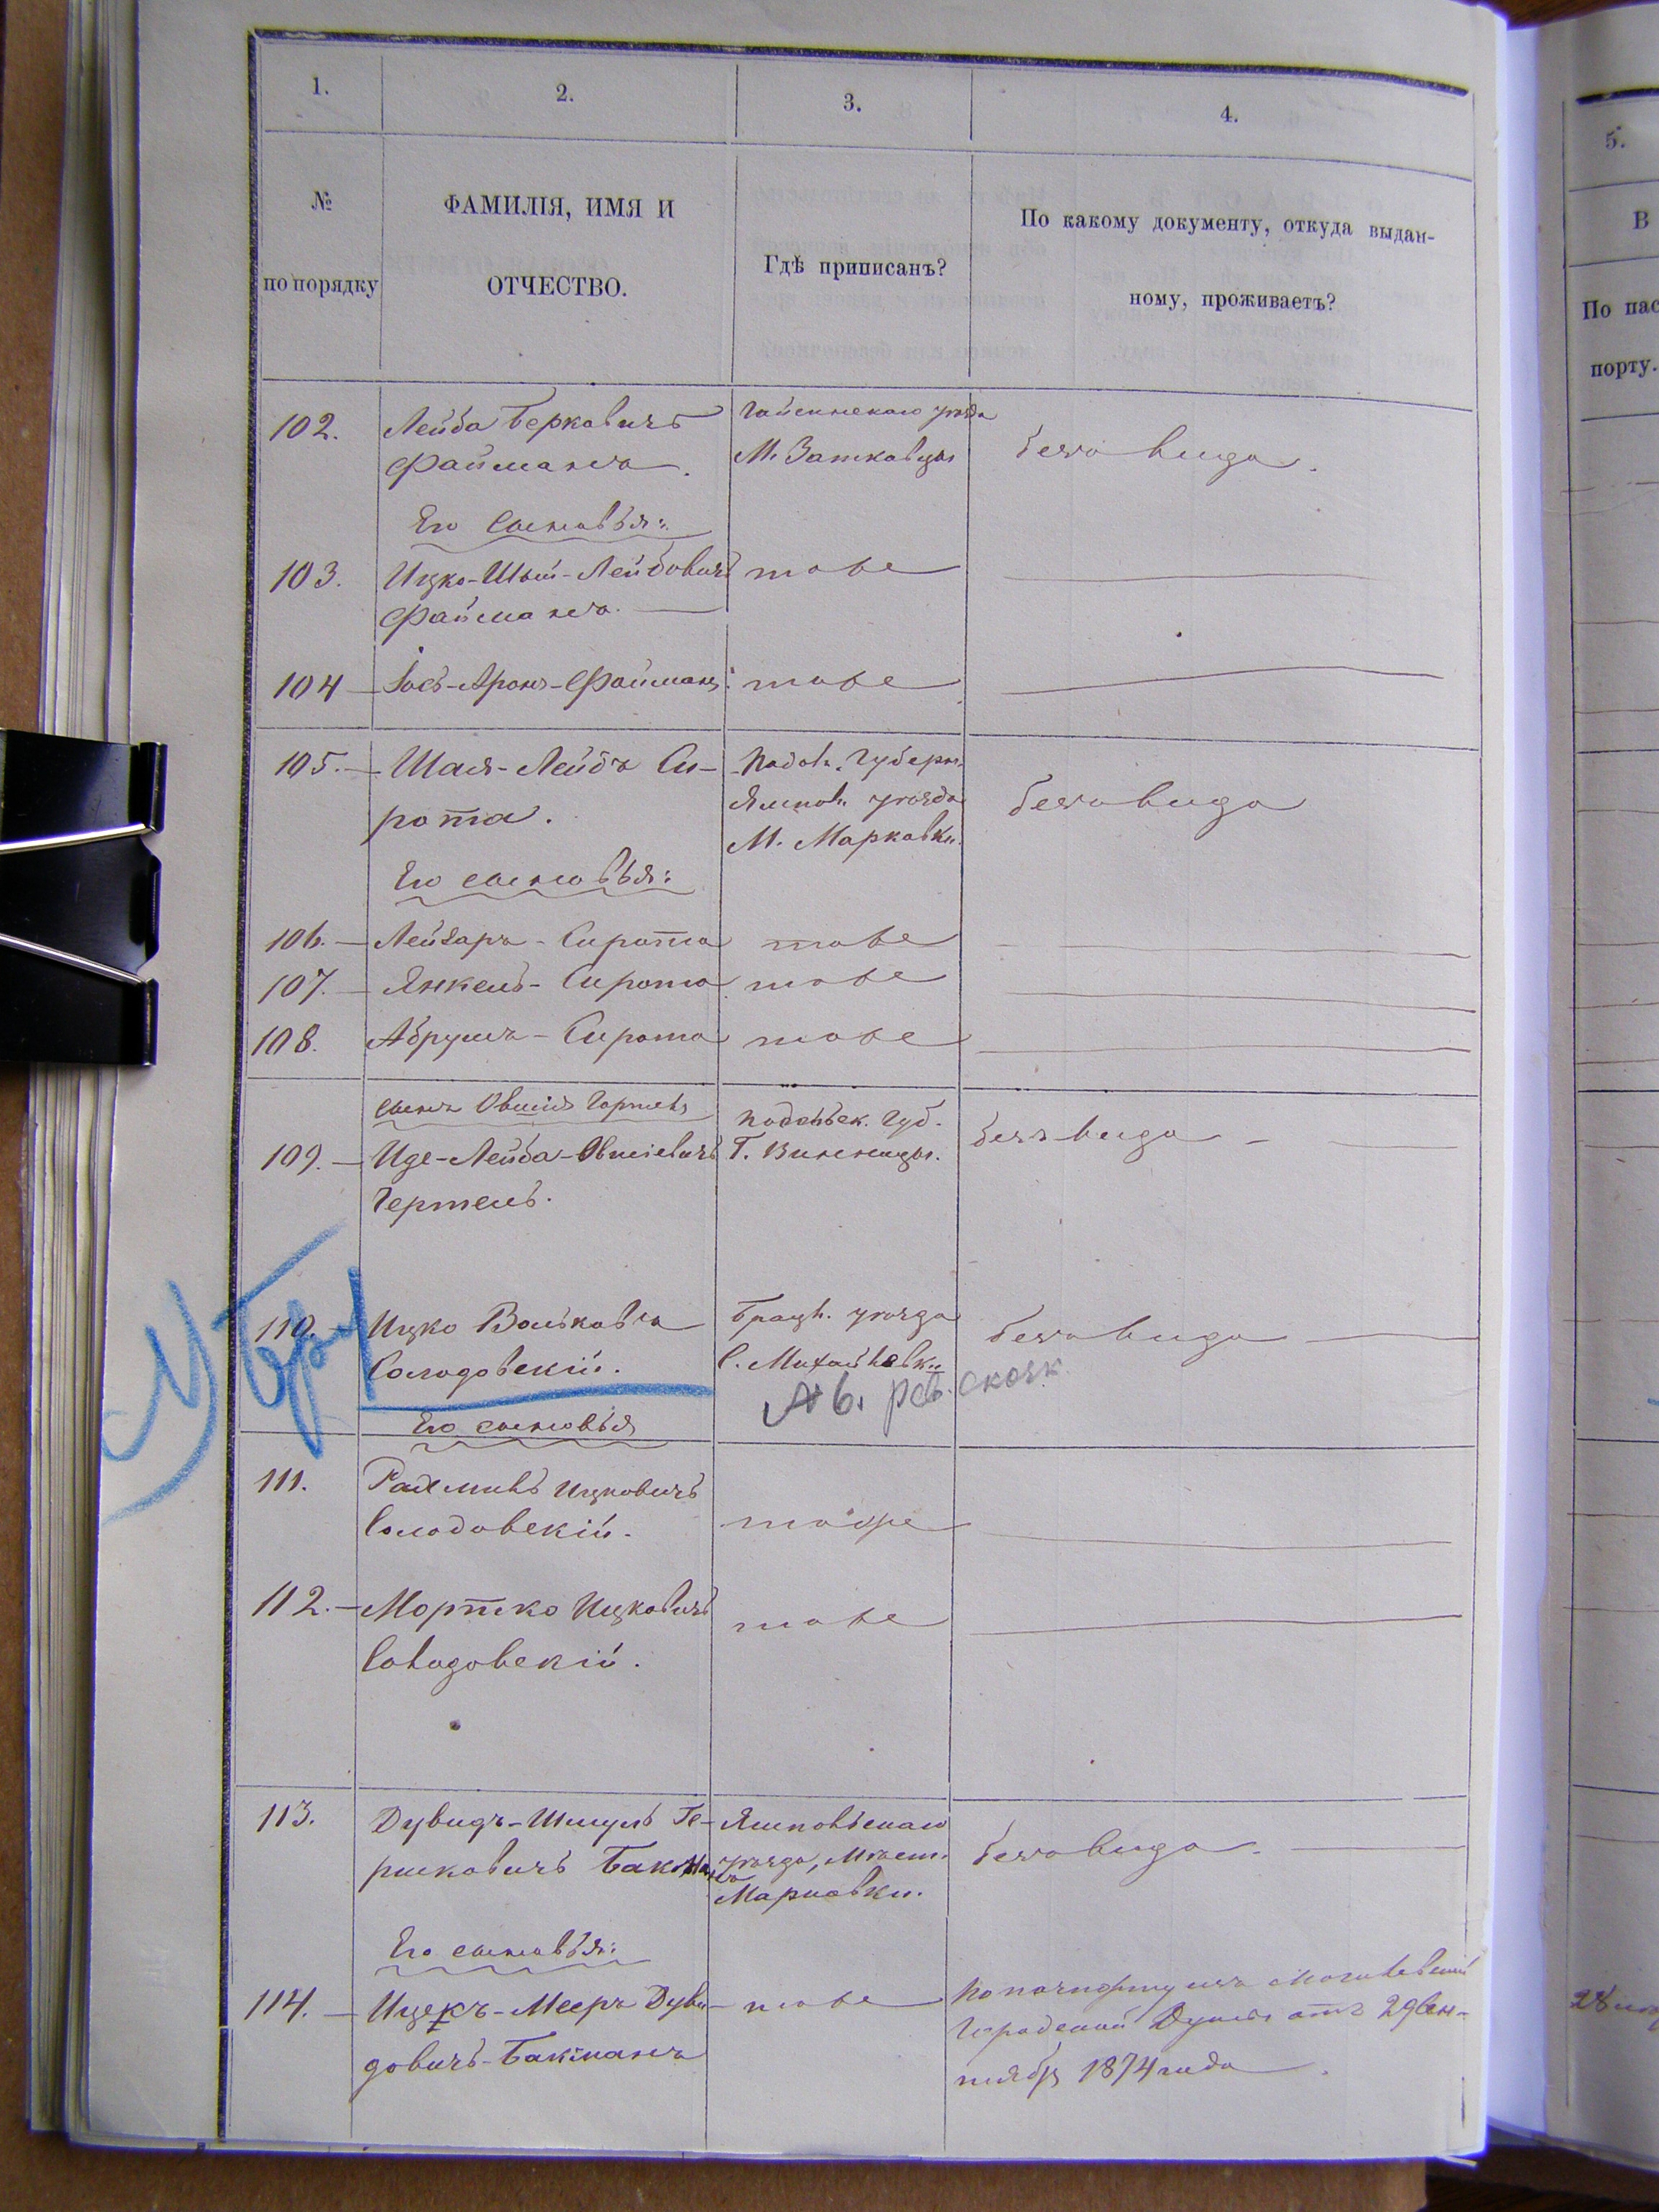 1.
2.
3.
4.
5.
№
по порядку
ФАМИЛІЯ, ИМЯ И
ОТЧЕСТВО.
Гдѣ приписанъ?
По какому документу, откуда выдан-
ному, проживаетъ?
В
По пас
порту.
102. Лейба Берковичъ Гайсинскаго уѣзда
Файманъ. М. Зятковцы безъ вида.
Его сыновья:
103. Ицко-Шый-Лейбовичъ тоже
Файманъ.
104 Іосъ-Аронъ-Файманъ тоже
105. Шая-Лейбъ Си- Подол. Губерн.
рота. Ямпол. уѣзда безъ вида
М. Марковки.
Его сыновья:
106. Лейзаръ - Сирота тоже
107. Янкель - Сирота тоже
108. Абрумъ - Сирота тоже
сынъ Овшія Гертель Подольск. Губ.
109. Иде-Лейба-Овшіевичъ Г. Винницы. безъ вида
Гертель.
110. Ицко Вольковъ Брацл. уѣзда безъ вида
Солодовскій. С. Михайловки
Его сыновья
111. Рахмиль Ицковичъ
Солодовскій. тоже
112. Мортко Ицковичъ тоже
Солодовскій.
113. Дувидъ-Шмуль Ге- Ямпольскаго
ршковичъ Бакманъ уѣзда, Мѣст. безъ вида.
Марковки.
Его сыновья:
114. Ицекъ-Мееръ Дуви- тоже По паспорту изъ Могилевской
довичъ-Бакманъ Городской Думы отъ 29 Сен-
тября 1874 года.